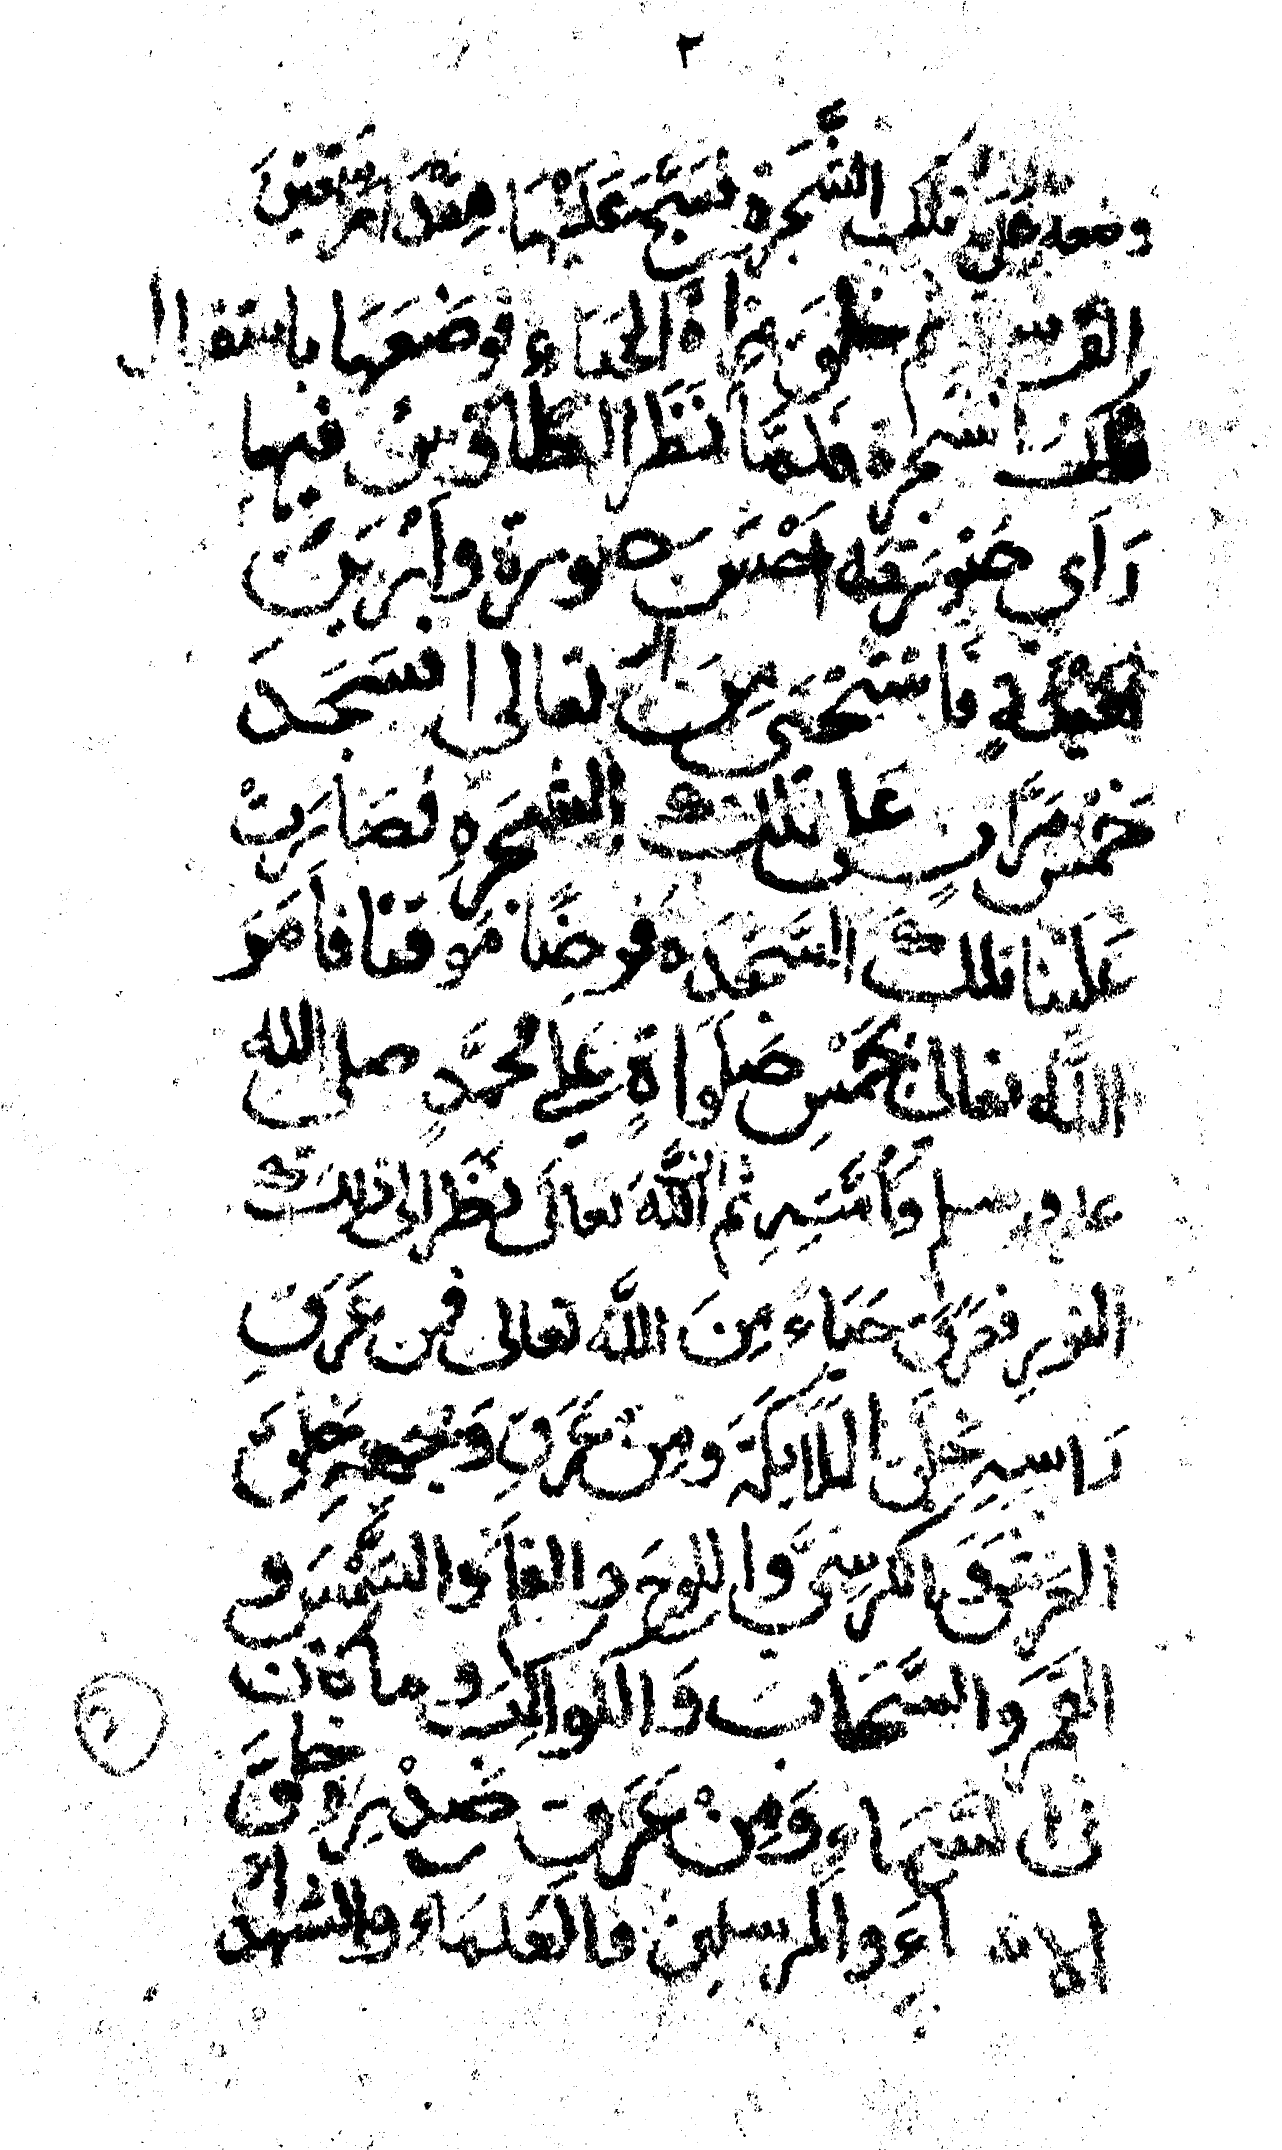 ٢
وضعه على تلك الشجرة فسبح عليها مقدار سبعين
الف سنة ثم خلق مرآة الحياء فوضعها باستقبال
تلك الشجرة فلما نظر الطاوس فيها
رأي صورته احسن صورة وازين
فاستحي من الله تعالى فسجد
خمس مرات على تلك الشجرة فصارت
علينا تلك السجدة فرضا موقتا فأمر
الله تعالى بخمس صلواة على محمد صلى الله
عليه وسلم وأمته ثم الله تعالى نظر الى ذلك
النور فعرق حياء من الله تعالى فمن عرق
راسه خلق الملائكة ومن عرق وجهه خلق
العرش والكرسي واللوح والقلم والشمس و
القمر والسمات والكواكب وما كان
في السماء ومن عرق صدره خلق
الانبياء والمرسلين والعلماء والشهداء
٢